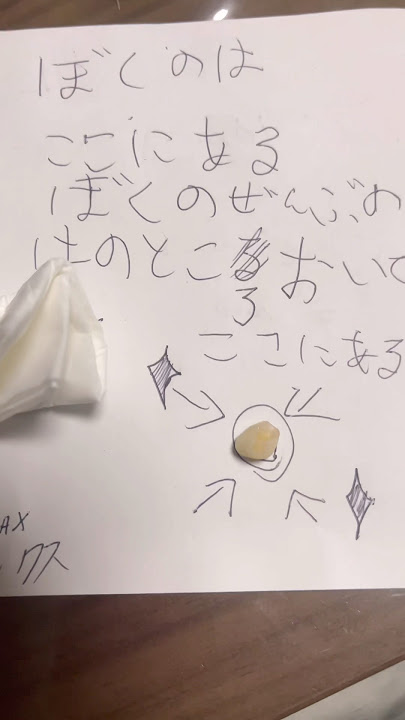 ぼくのは
ここにある
ぼくのぜんぶの
はのところおいて
ここにある
AX
クス